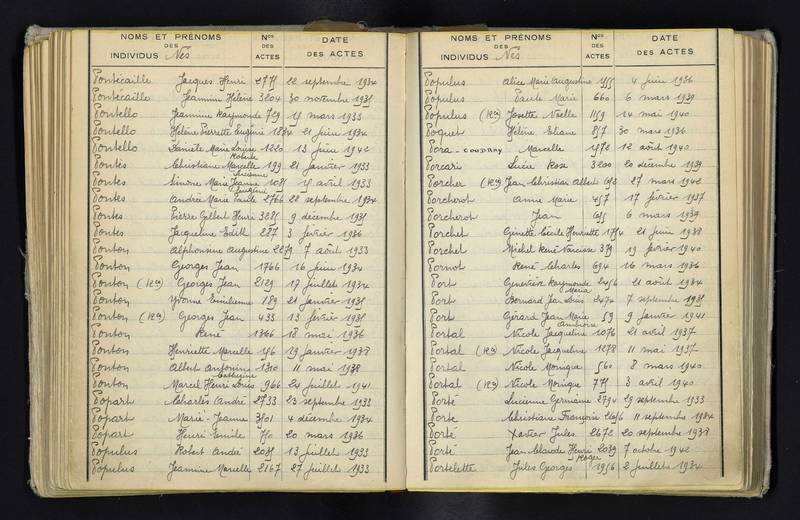 NOMS ET PRÉNOMS
DES
INDIVIDUS Nés
Nos
DES
ACTES
DATE
DES ACTES
Pontécaille Jacques Henri 22 septembre 1934
Pontécaille Jeannine Hélène 3204 30 novembre 1935
Pontello Jeannine Raymonde 729 mars 1933
Pontello Hélène Pierrette Eugénie 1834 21 juin 1934
Pontello Danièle Marie Louise 1220 13 juin 1942
Pontés Christiane Marcelle 199 21 janvier 1933
Pontes Simone Marie Jeanne avril 1933
Pontes Andrée Marie Paule 2766 22 septembre 1934
Pontes Pierre Gilbert Henri 9 décembre 1935
Pontes Jacqueline Edith 287 3 février 1936
Ponton Alphonsine Augustine 2279 7 août 1933
Ponton Georges Jean 1766 16 juin 1934
Ponton (Rco) Georges Jean 2129 17 juillet 1934
Ponton Yvonne Emilienne 189 21 janvier 1935
Ponton (Rco) Georges Jean 433 13 février 1935
Ponton René 1366 18 mai 1936
Ponton Henriette Marcelle 19 janvier 1938
Ponton Albert Antonin 1310 11 mai 1938
Ponton Marcel Henri Louis 966 24 juillet 1941
Popart Charles André 2733 23 septembre 1933
Popart Marie-Jeanne 4 décembre 1934
Popart Henri Emile 20 mars 1936
Populus Robert André 13 juillet 1933
Populus Jeannine Marcelle 2167 27 juillet 1933
NOMS ET PRÉNOMS
DES
INDIVIDUS Nés
Nos
DES
ACTES
DATE
DES ACTES
Populus Alice Marie Augustine 4 juin 1936
Populus Paule Marie 660 6 mars 1939
Populus (Rco) Josette Noelle 1159 14 mai 1940
Poquet Hélène Eliane 857 30 mars 1936
Pora - COUDRAY Marcelle 1572 12 août 1940
Porcari Lucie Rose 3200 20 décembre 1939
Porcher (Rco) Jean Christian Albert 27 mars 1942
Porcherot Anne Marie 457 17 février 1937
Porcherot Jean 6 mars 1939
Porchet Ginette Cécile Henriette 21 juin 1938
Porchet Michel René Narcisse 379 19 février 1940
Pornot René Charles 694 16 mars 1936
Port Geneviève Raymonde Maria 2456 21 août 1934
Port Bernard Jean Louis 2474 7 septembre 1935
Port Gérard Jean Marie Ambroise 59 9 janvier 1941
Portal Nicole Jacqueline 1076 21 avril 1937
Portal (Rco) Nicole Jacqueline 1278 11 mai 1937
Portal Nicole Monique 560 8 mars 1940
Portal (Rco) Nicole Monique 3 avril 1940
Porté Lucienne Germaine 2794 29 septembre 1933
Porte Christiane Françoise 2656 11 septembre 1934
Porté Xavier Jules 2672 20 septembre 1938
Porté Jean Claude Henri Roger 2089 7 octobre 1942
Portelette Jules Georges 1956 2 juillet 1934